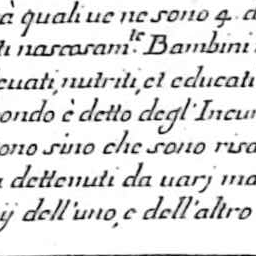 à quali ue ne sono 4. d
ti nascosam.te Bambini
euati, nutriti, et educati
ondo è detto degl'Incur
ono sino che sono risa
dettenuti da uarj ma
ij dell'uno, e dell'altro